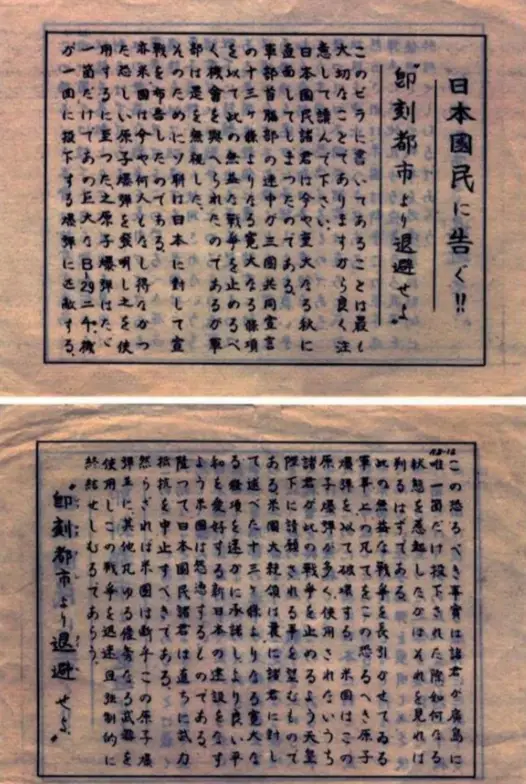 日本國民に告ぐ!!
"即刻都市より退避せよ"
このビラに書いてあることは最も
大切なことでありますから良く注
意して讀んで下さい。
日本國民諸君は今や重大なる秋に
直面してしまつたのである。
軍部首脳部の連中が三國共同宣言
の十三ヶ條よりなる寛大なる條項
を以て此の無益な戰争を止めるべ
く機會を與へられたのであるが軍
部は是を無視した。
そのためにソ聯は日本に對して宣
戰を布告したのである。
亦米國は今や何人もなし得なかつ
た恐しい原子爆弾を發明し之を使
用するに至つた。之原子爆弾はたゞ
一箇だけであの巨大なB-29二千機
が一回に投下する爆弾に匹敵する。
この恐るべき事實は諸君が廣島に
唯一箇だけ投下された際如何なる
状態を惹起したかはそれを見れば
判るはずである。
此の無益な戰争を長引かせてゐる
軍事上の凡てをこの恐るべき原子
爆弾を以て破壊する。米國はこの
原子爆弾が多く使用されないうち
諸君が此の戰争を止めるよう天皇
陛下に請願される事を望むもので
ある米國大統領は曩に諸君に對し
て述べた十三ヶ條よりなる寛大な
る條項を速かに承諾しより良い平
和を愛好する新日本の建設をなす
よう米國は慫慂するものである。
依つて日本國民諸君は直ちに武力
抵抗を中止すべきである。
然らざれば米國は断乎この原子爆
弾並に其他凡ゆる優秀なる武器を
使用しこの戰争を迅速且強制的に
終結せしむるであらう。
"即刻都市より退避せよ"